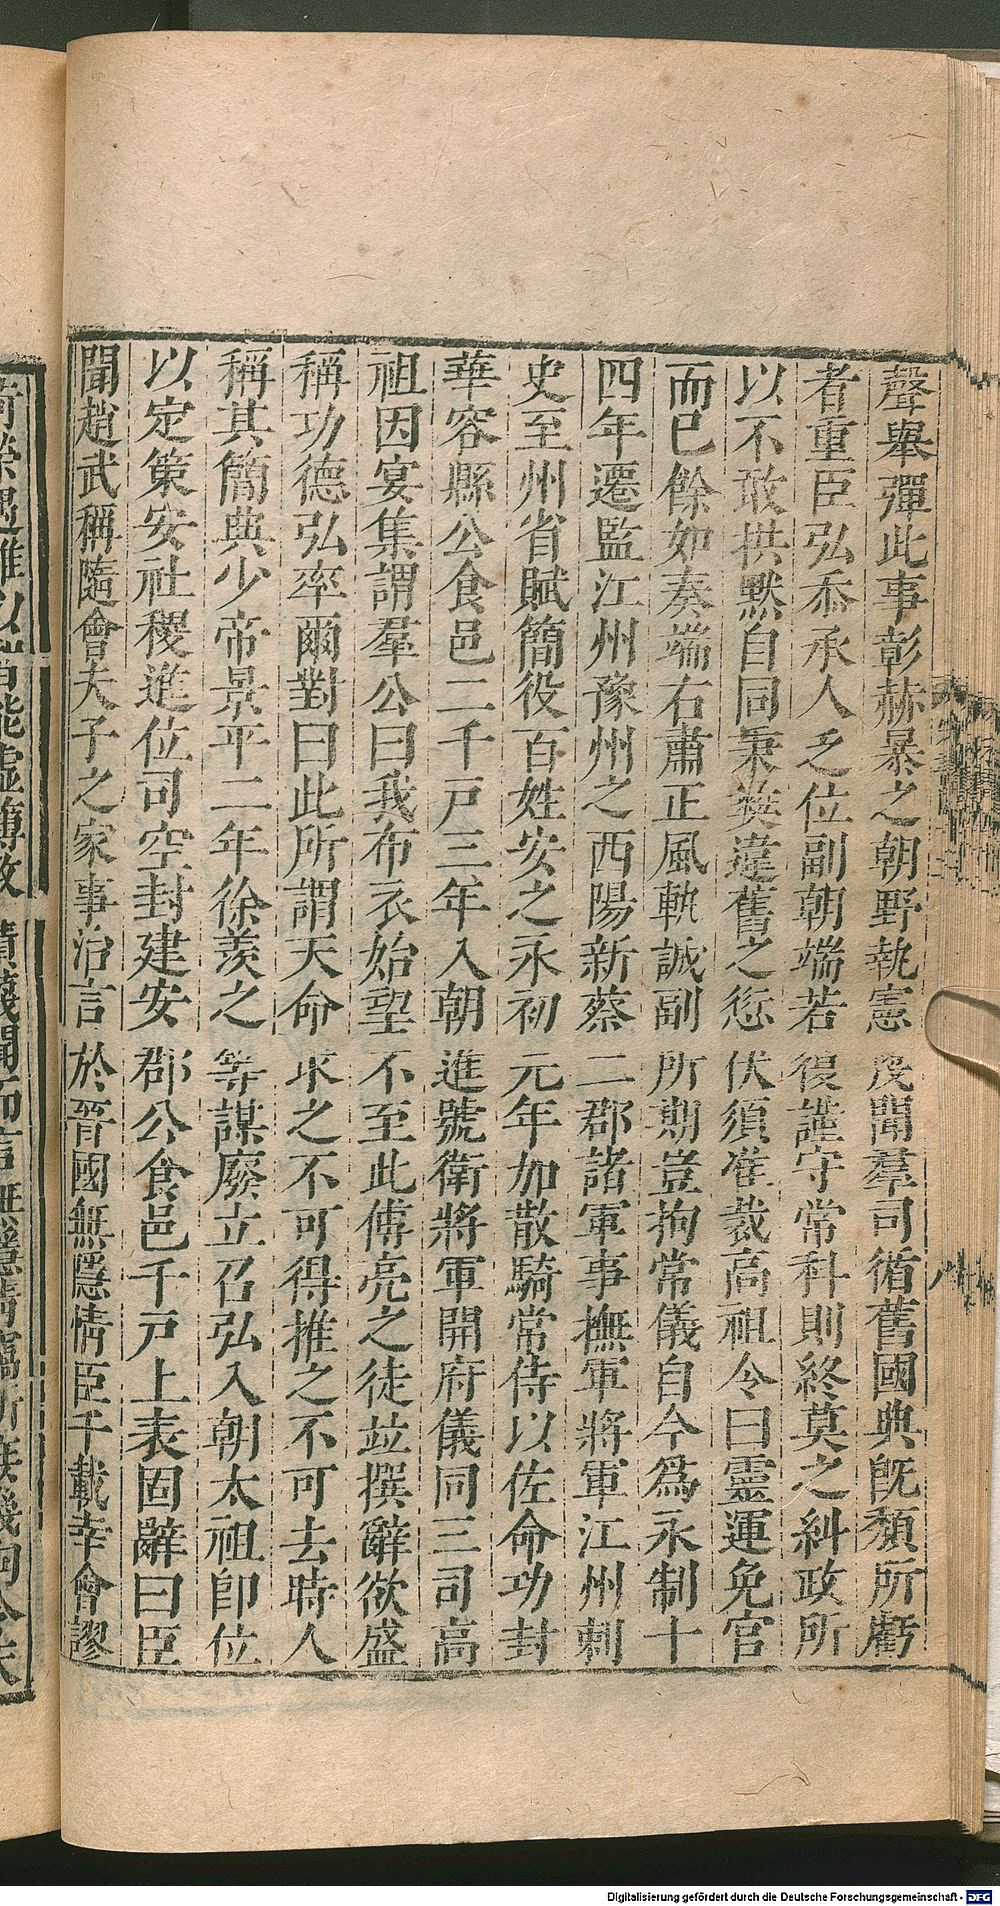 聲舉彈此事彰赫暴之朝野執憲蔑聞羣司循舊國典旣頹所虧
者重臣弘忝承人乏位副朝端若復謹守常科則終莫之糾政所
以不敢拱黙自同秉彝違舊之愆伏須准裁高祖令曰靈運免官
而已餘如奏端右肅正風軌誠副所期豈拘常儀自今爲永制十
四年遷監江州豫州之西陽新蔡二郡諸軍事撫軍將軍江州刺
史至州省賦簡役百姓安之永初元年加散騎常侍以佐命功封
華容縣公食邑二千戸三年入朝進號衛將軍開府儀同三司高
祖因宴集謂羣公曰我布衣始望不至此傅亮之徒竝撰辭欲盛
稱功德弘率爾對曰此所謂天命求之不可得推之不可去時人
稱其簡典少帝景平二年徐羨之等謀廢立召弘入朝太祖卽位
以定策安社稷進位司空封建安郡公食邑千戸上表固辭曰臣
聞趙武稱隨會夫子之家事治言於晉國無隱情臣千載幸會謬
Digitalisierung gefördert durch die Deutsche Forschungsgemeinschaft - DFG